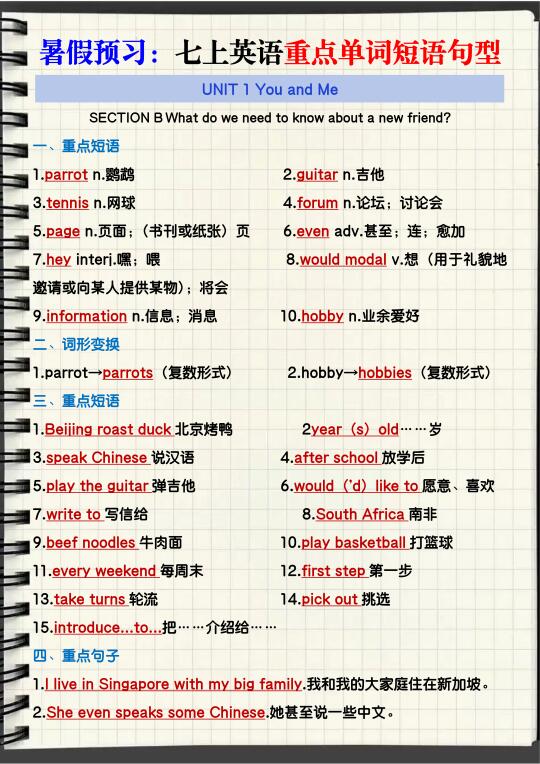 暑假预习：七上英语重点单词短语句型
UNIT 1 You and Me
SECTION B What do we need to know about a new friend?
一、重点短语
1.parrot n.鹦鹉 2.guitar n.吉他
3.tennis n.网球 4.forum n.论坛；讨论会
5.page n.页面；（书刊或纸张）页 6.even adv.甚至；连；愈加
7.hey interj.嘿；喂 8.would modal v.想（用于礼貌地
邀请或向某人提供某物）；将会
9.information n.信息；消息 10.hobby n.业余爱好
二、词形变换
1.parrot→parrots（复数形式） 2.hobby→hobbies（复数形式）
三、重点短语
1.Beijing roast duck 北京烤鸭 2year（s）old……岁
3.speak Chinese 说汉语 4.after school 放学后
5.play the guitar 弹吉他 6.would（'d）like to 愿意、喜欢
7.write to 写信给 8.South Africa 南非
9.beef noodles 牛肉面 10.play basketball 打篮球
11.every weekend 每周末 12.first step 第一步
13.take turns 轮流 14.pick out 挑选
15.introduce...to...把……介绍给……
四、重点句子
1.I live in Singapore with my big family.我和我的大家庭住在新加坡。
2.She even speaks some Chinese.她甚至说一些中文。